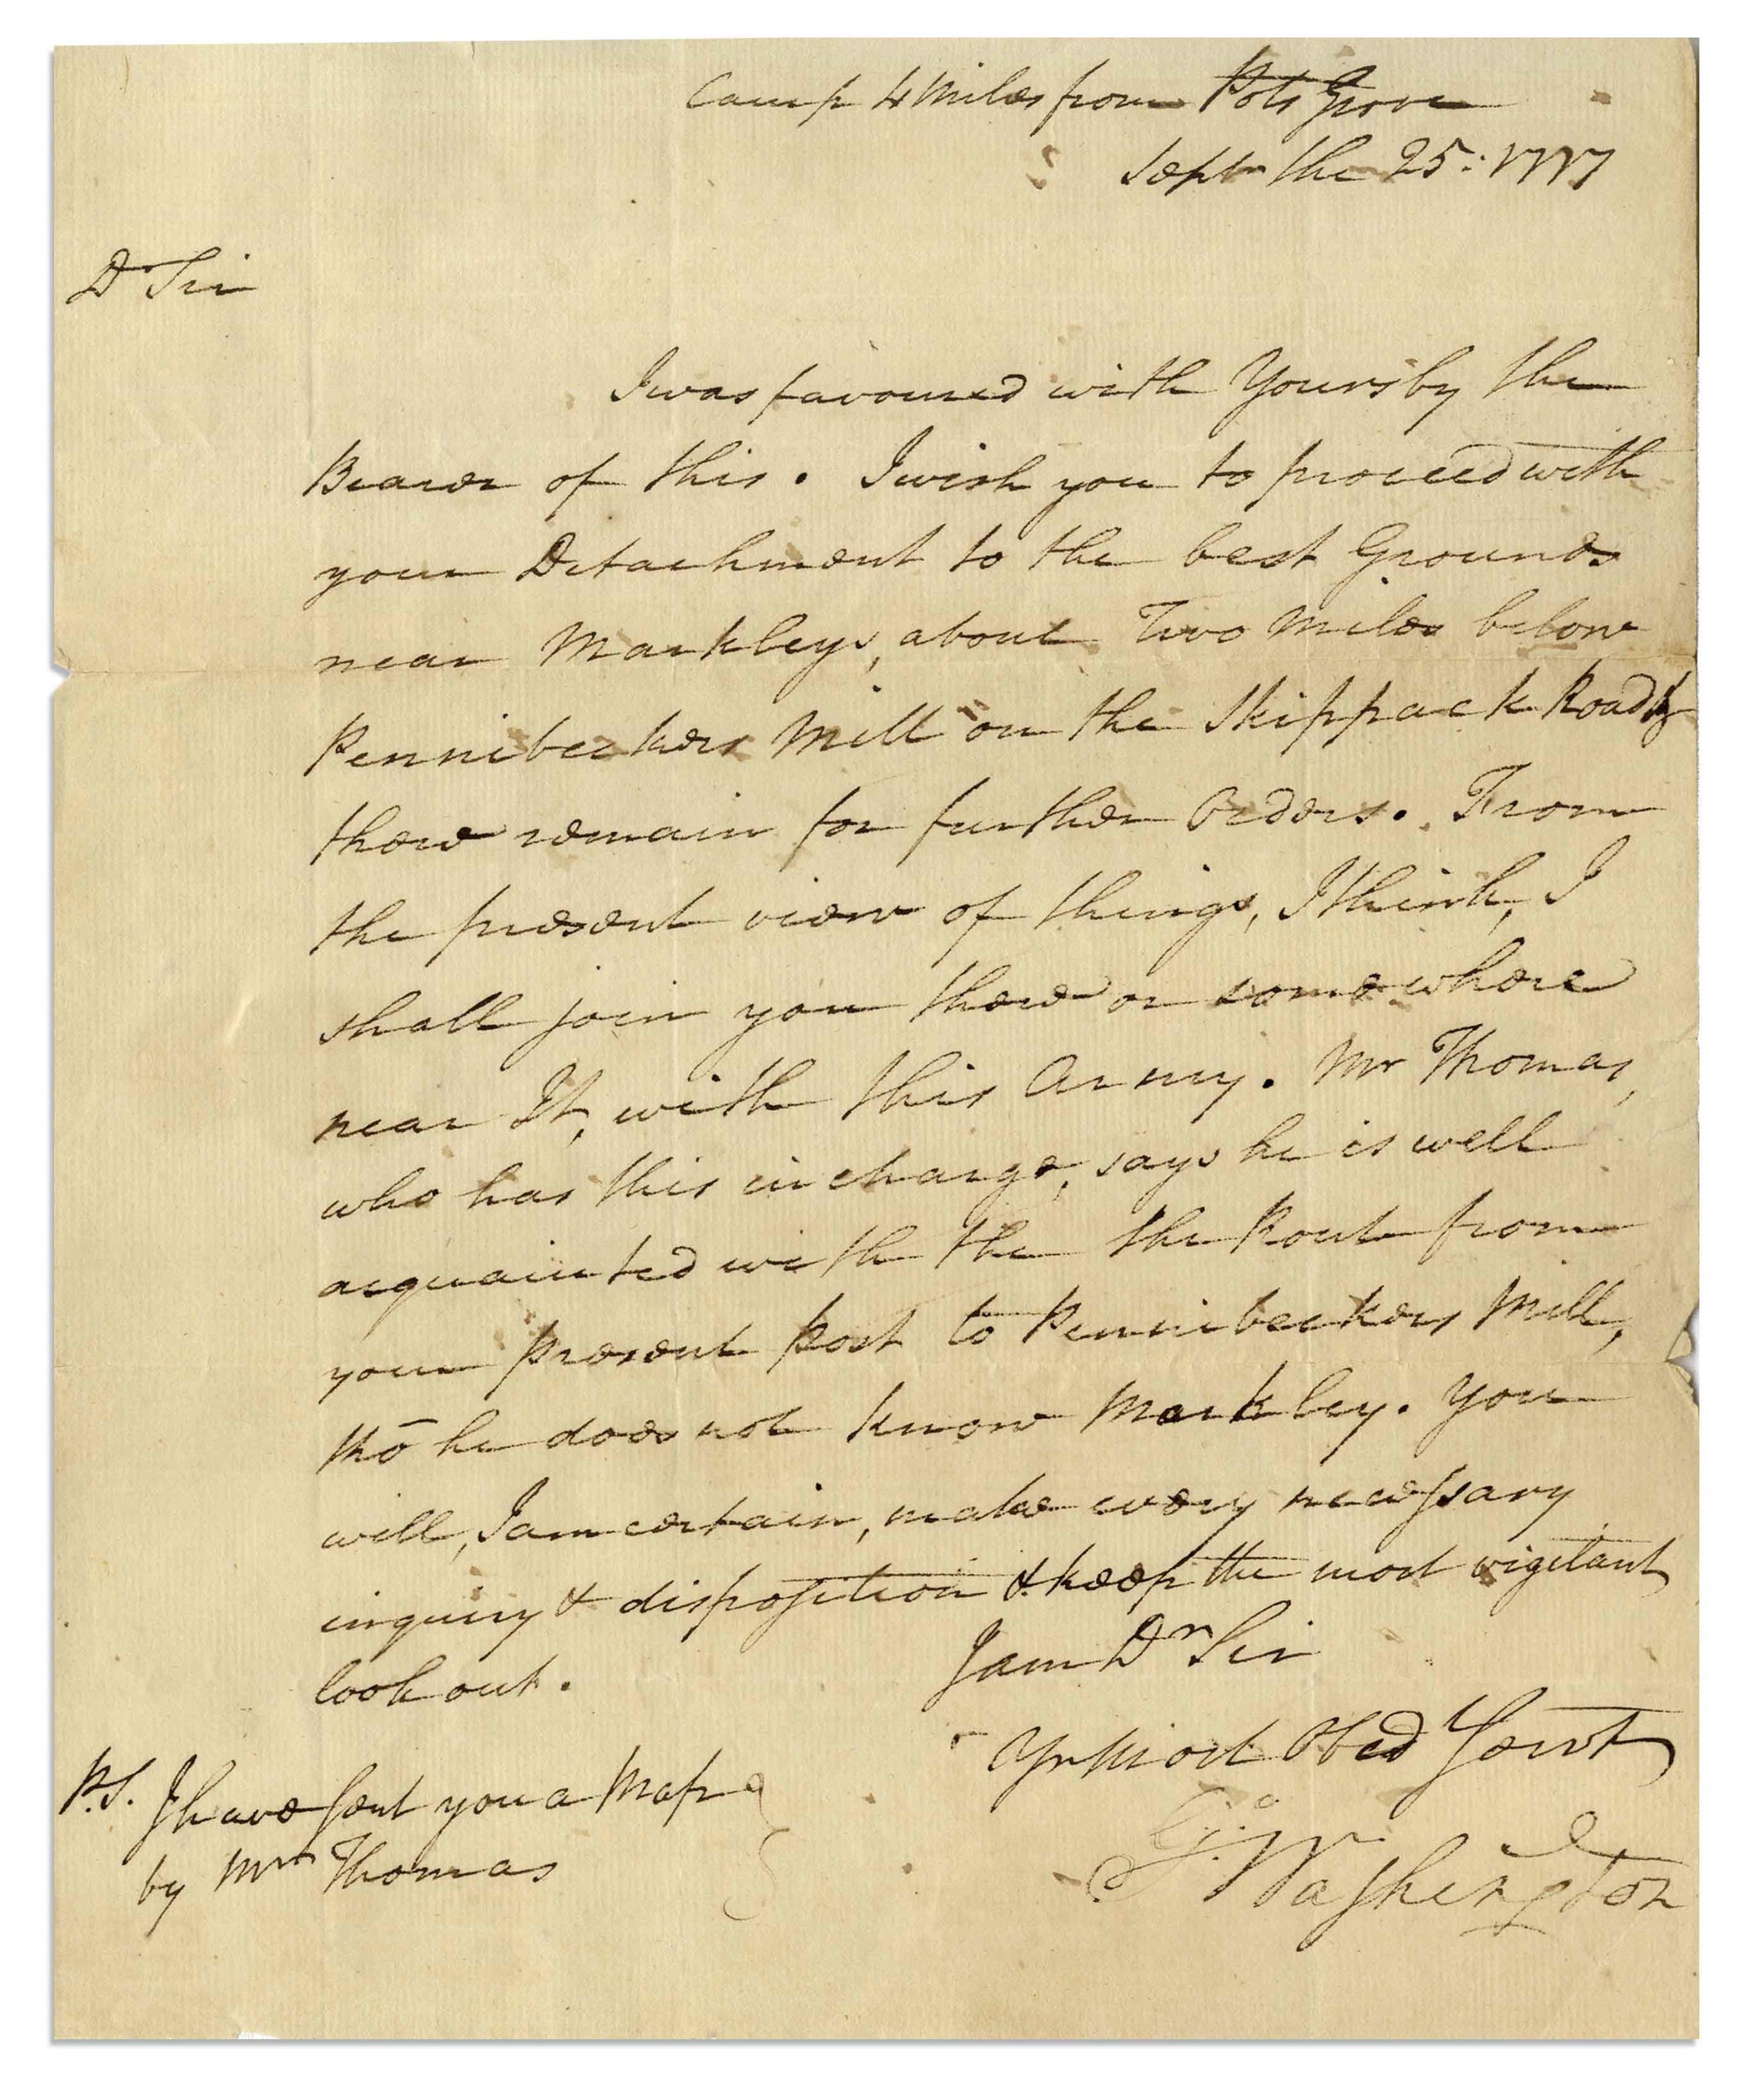 Camp 4 Miles from Pots Grove
Sept the 25: 1777
Dr Sir
I was favoured with Yours by the
Bearer of this. I wish you to proceed with
your Detachment to the best Grounds
near Markleys, about Two Miles below
Pennibeckers Mill on the Skippack Road &
there remain for further Orders. From
the present view of things, I think, I
shall join you there or somewhere
near It, with this Army. Mr Thomas,
who has this in charge, says he is well
acquainted with the the Rout from
your present Post to Pennibeckers Mill,
tho he does not know Markley. You
will, I am certain, make every necessary
inquiry & disposition & keep the most vigilant
look out.
I am Dr Sir
Yr Most Obed Servt
Go: Washington
P.S. I have sent you a Map
by Mr Thomas